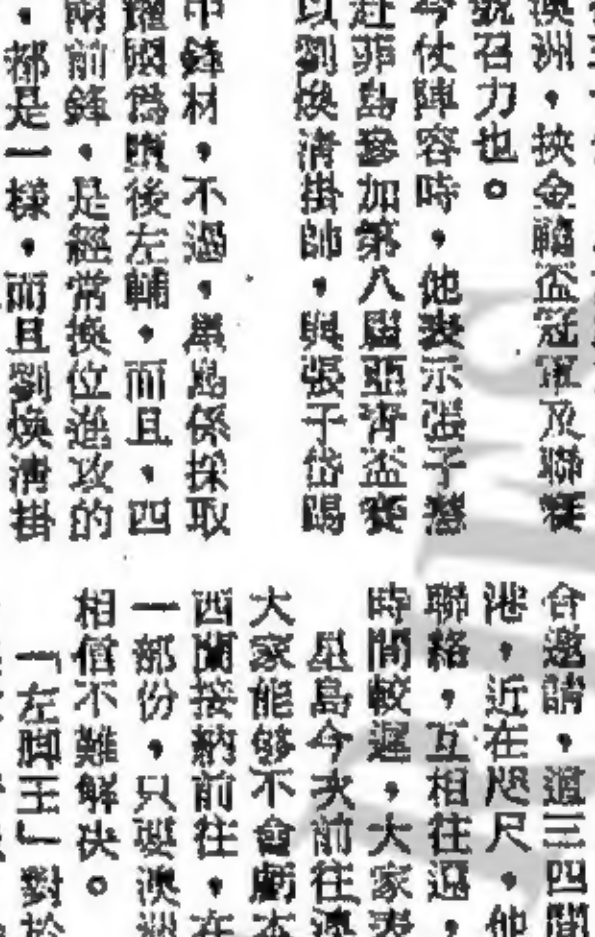 澳洲，挾金輪盃冠軍及聯賽
號召力也。
今仗陣容時，他表示張子慧
赴菲島參加第八屆亞青盃賽
以劉煥清掛帥，與張子岱踢
中鋒材，不過，星島係採取
耀國爲墮後左輔，而且，四
兩前鋒，是經常換位進攻的
，都是一樣，而且劉煥清掛
合邀請，這三四間
港，近在咫尺，他
聯絡，互相往還，
時間較遲，大家表
星島今次前往澳
大家能够不會虧本
西蘭接納前往，在
一部份，只要澳洲
相信不難解决。
「左脚王」對於